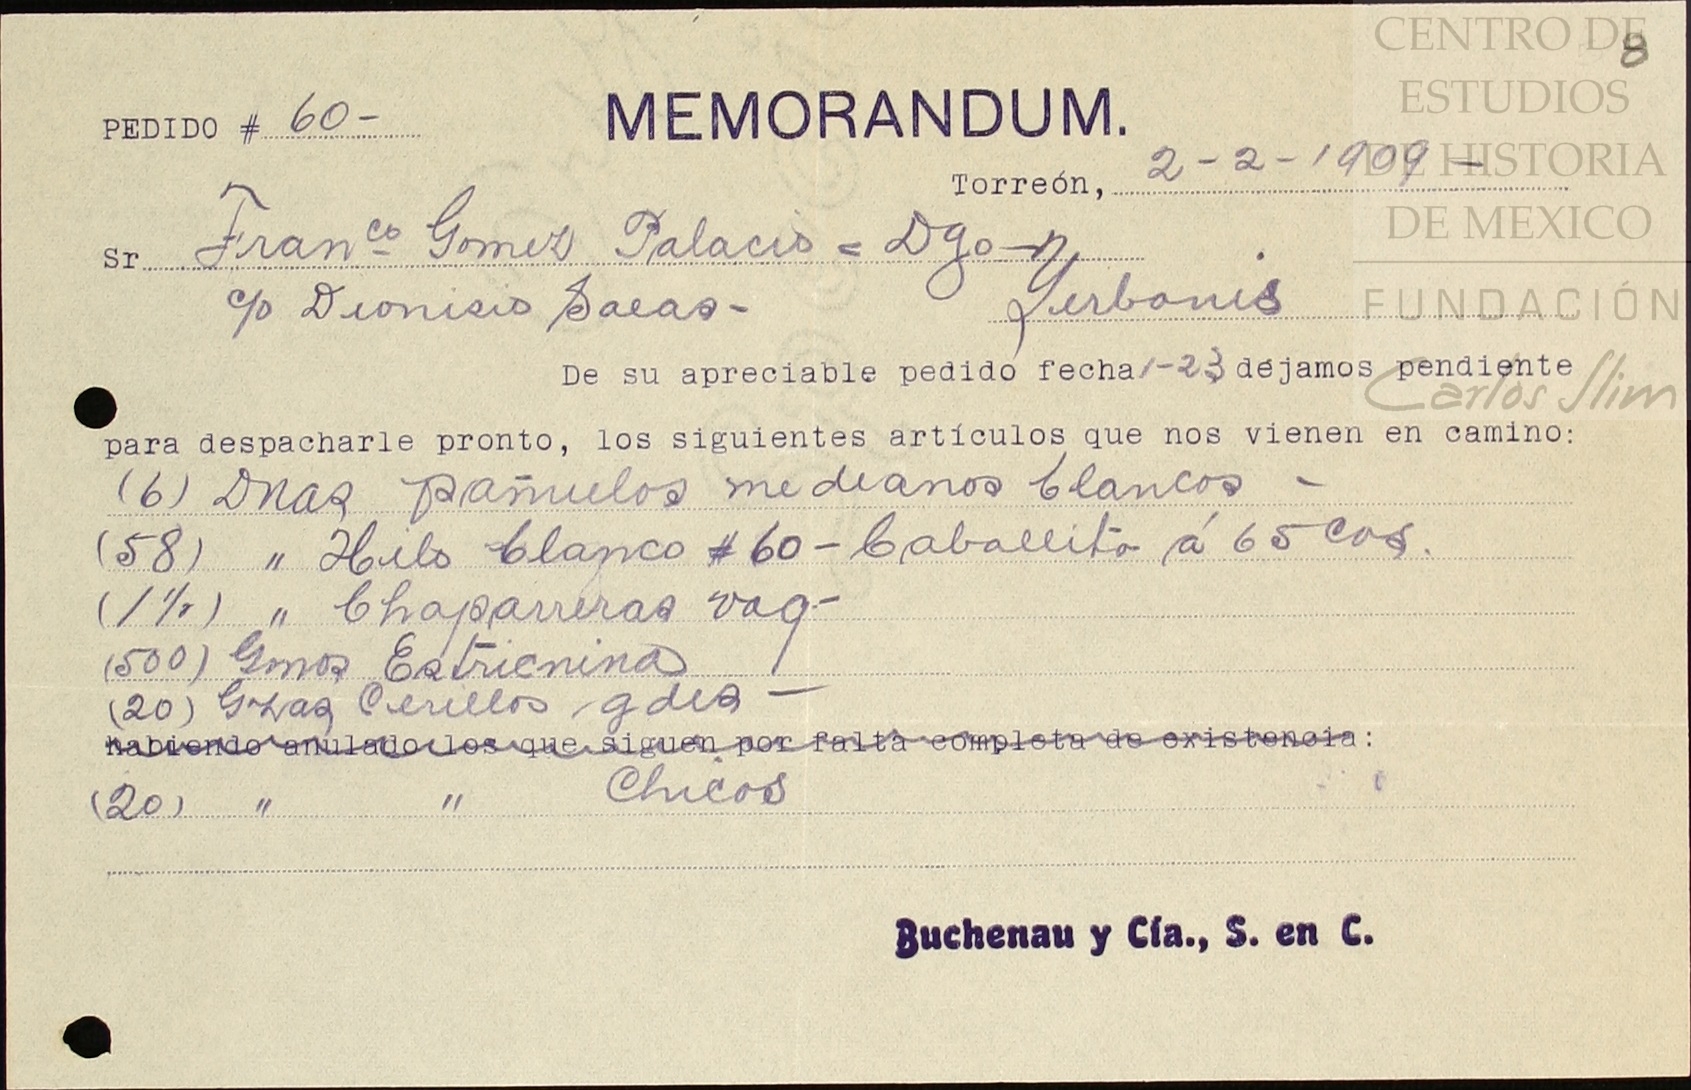 CENTRO DE
ESTUDIOS
DE HISTORIA
DE MEXICO
FUNDACIÓN
Carlos Slim
8
PEDIDO # 60-
MEMORANDUM.
Torreón, 2-2-1909-
Sr Franco Gomez Palacio = Dgo
c/o Dionisio Salas- Yerbanis
De su apreciable pedido fecha 1-23 dejamos pendiente
para despacharle pronto, los siguientes artículos que nos vienen en camino:
(6) Dnas pañuelos medianos blancos -
(58) " Hilo blanco #60- Caballito á 65 cos.
(1 1/2) " Chaparreras vaq-
(500) Gmos Estricnina
(20) Gzas Cerillos gdes -
habiendo anulado los que siguen por falta completa de existencia:
(20) " " Chicos
Buchenau y Cía., S. en C.